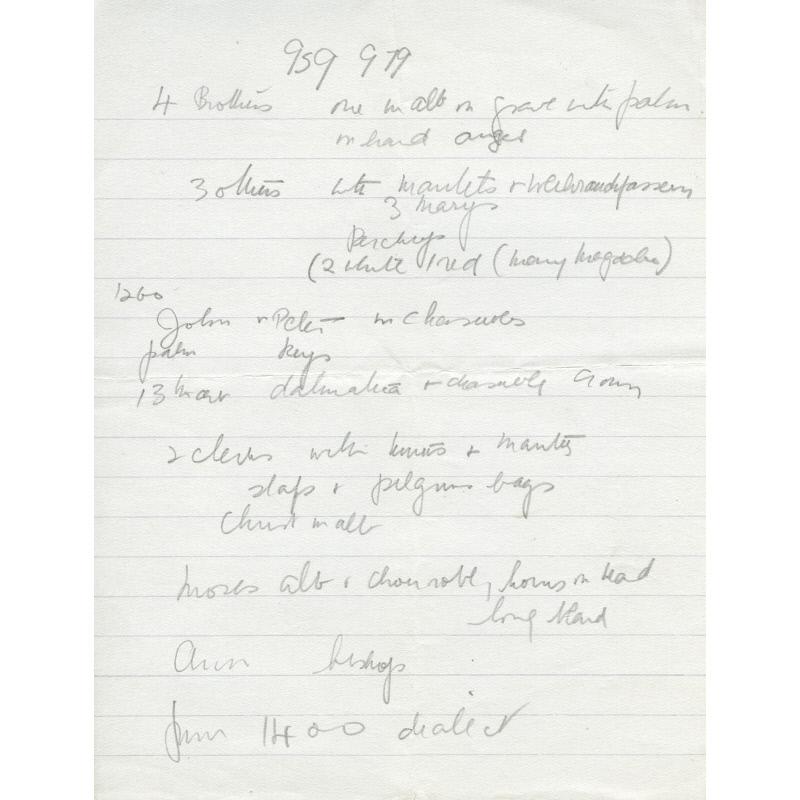 959 979
4 Brothers one in alb on grave with palm
in hand angel
3 others with mantels + Weihrauchfassern
3 Marys
(2 white 1 red (Mary Magdalen)
1260
John + Peter in chasubles
palm keys
13 dalmatica + chasuble crown
2 clerks with tunics + mantels
stafs + pilgrims bags
Christ in alb
Moses alb + chasuble, horns on head
long beard
bishops
from 1400 dialect